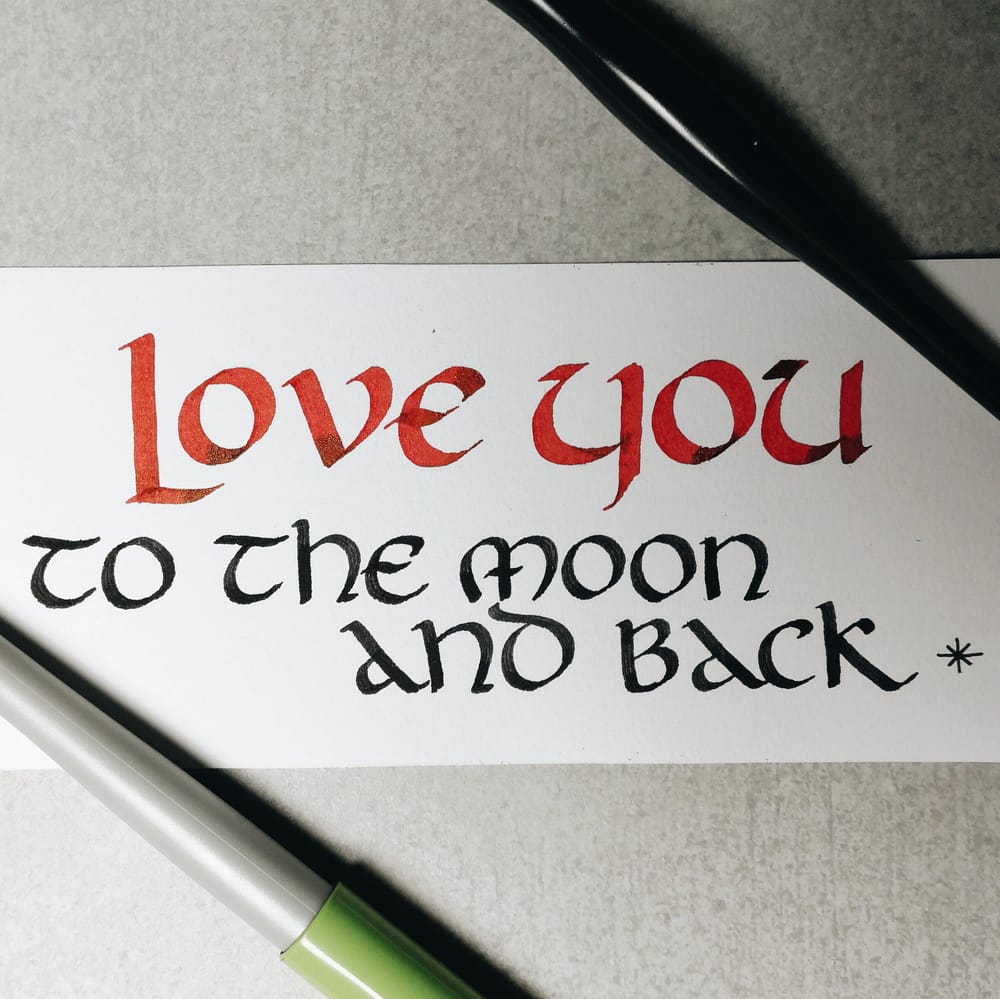 Love you
to the moon
and back *